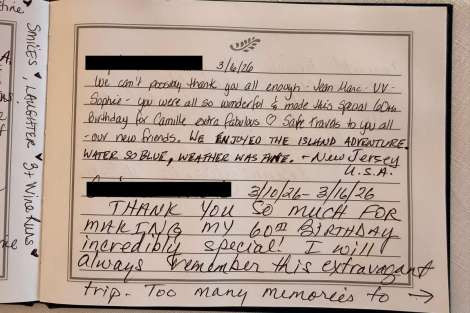 3/16/26
We can't possibly thank you all enough - Jean Marc - VV -
Sophie - you were all so wonderful & made this special 60th
birthday for Camille extra fabulous ♡ Safe travels to you all
- our new friends. WE ENJOYED THE ISLAND ADVENTURE.
WATER SO BLUE, WEATHER WAS FINE. - New Jersey
U.S.A.
3/10/26 - 3/16/26
THANK YOU SO MUCH FOR
MAKING MY 60TH BIRTHDAY
incredibly special! I will
always remember this extravagant
trip. Too many memories to →
SMILES, LAUGHTER